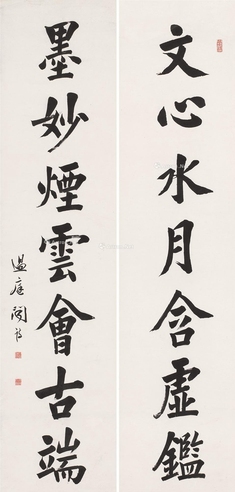 文心水月含虛鑑
墨妙煙雲會古端
溫庭閔